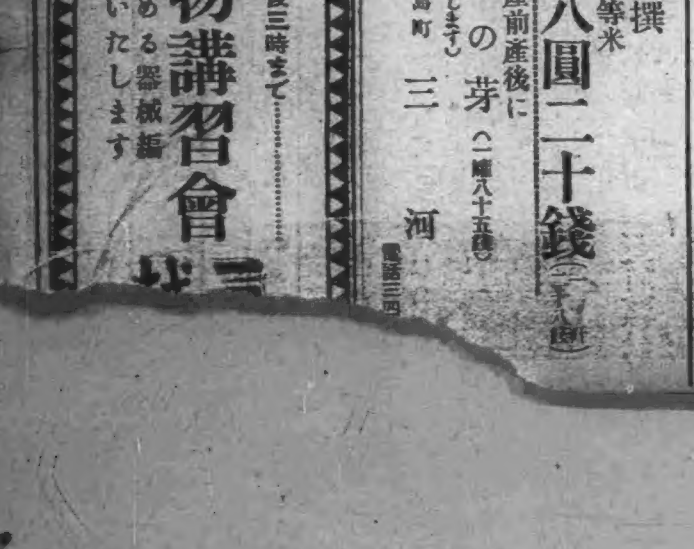 撰
等米
八圓二十錢
産前産後に
の芽（一罐八十五錢）
します）
島町
三河
電話三四
後三時まで
物講習會
める器械編
いたします